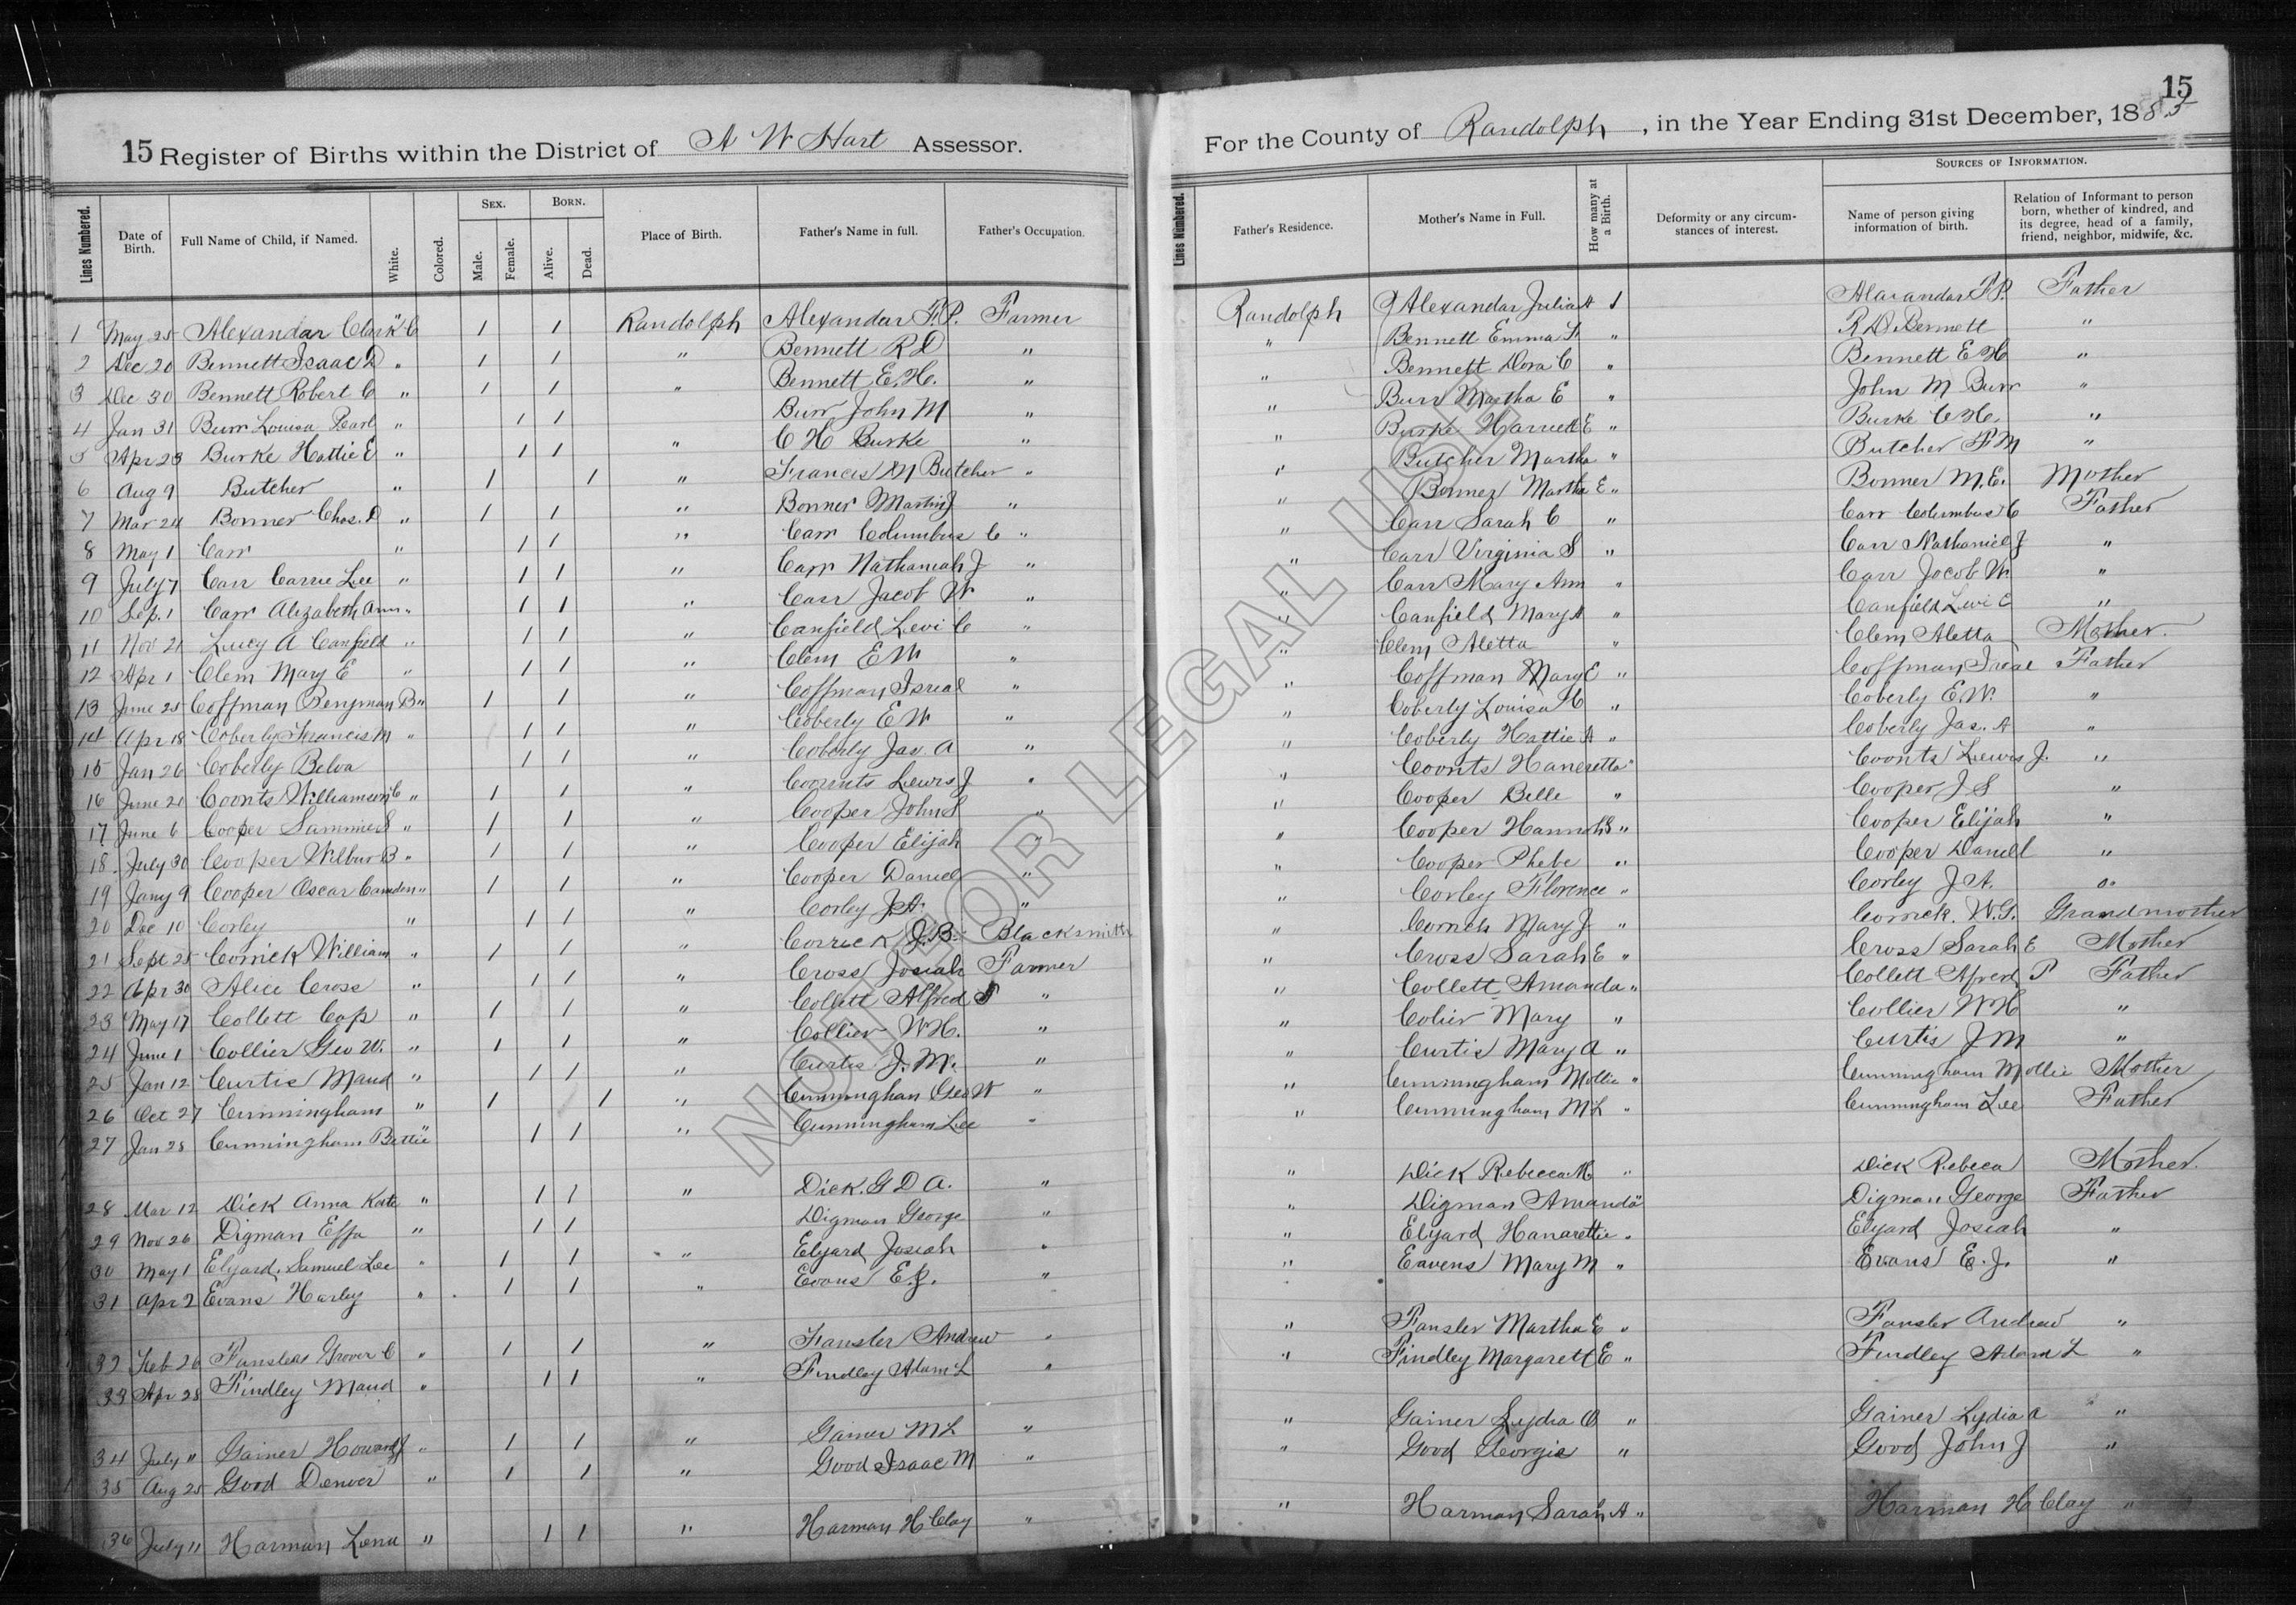 15 Register of Births within the District of A W Hart Assessor.
Lines Numbered. Date of Birth. Full Name of Child, if Named. White. Colored. Sex. Male. Female. Born. Alive. Dead. Place of Birth. Father's Name in full. Father's Occupation.
1 May 25 Alexandar Clark C " 1 1 Randolph Alexandar F.P. Farmer
2 Dec 20 Bennett Isaac D " 1 1 " Bennett R D "
3 Dec 30 Bennett Robert C " 1 1 " Bennett E. H. "
4 Jan 31 Burr Louisa Pearl " 1 1 Burr John M "
5 Apr 23 Burke Hattie E " 1 1 " C H Burke "
6 Aug 9 Butcher " 1 1 " Francis M Butcher "
7 Mar 24 Bonner Chas. D " 1 1 " Bonner Martin J "
8 May 1 Carr " 1 1 " Carr Columbus C "
9 July 7 Carr Carrie Lee " 1 1 " Carr Nathaniah J "
10 Sep. 1 Carr Alizabeth Ann " 1 1 " Carr Jacob W "
11 Nov 21 Lucy A Canfield " 1 1 " Canfield Levi C "
12 Apr 1 Clem Mary E " 1 1 " Clem E W "
13 June 25 Coffman Benjman B " 1 1 " Coffman Isrial "
14 Apr 18 Coberly Francis M " 1 1 " Coberly E W "
15 Jan 26 Coberly Belva 1 1 " Coberly Jas. A "
16 June 21 Coonts Williamson C " 1 1 " Coonts Lewis J "
17 June 6 Cooper Sammie S " 1 1 " Cooper John S "
18 July 30 Cooper Wilbur B " 1 1 " Cooper Elijah "
19 Jany 9 Cooper Oscar Camden " 1 1 " Cooper Daniel "
20 Dec 10 Corley " 1 1 " Corley J A. "
21 Sept 25 Corrick William " 1 1 " Corrick J. B. Blacksmith
22 Apr 30 Alice Cross " 1 1 " Cross Josiah Farmer
23 May 17 Collett Cap " 1 1 " Collett Alfred P "
24 June 1 Collier Geo W. " 1 1 " Collier W H. "
25 Jan 12 Curtis Maud " 1 1 " Curtis J. M. "
26 Oct 27 Cunningham " 1 1 " Cunningham Geo W "
27 Jan 28 Cunningham Bettie " 1 1 " Cunningham Lee "
28 Mar 12 Dick Anna Kate " 1 1 " Dick. G D A. "
29 Nov 26 Digman Effa " 1 1 Digman George "
30 May 1 Elyard, Samuel Lee " 1 1 " Elyard Josiah "
31 Apr 2 Evans Harley " 1 1 " Evans E. J. "
32 Feb 26 Fansler Grover C " 1 1 " Fansler Andrew "
33 Apr 28 Findley Maud " 1 1 " Findley Adam L "
34 July 11 Gainer Howard J " 1 1 " Gainer M L "
35 Aug 25 Good Denver " 1 1 " Good Isaac M "
36 July 11 Harman Lena " 1 1 " Harman H Clay "
15
For the County of Randolph, in the Year Ending 31st December, 1885
Lines Numbered. Father's Residence. Mother's Name in Full. How many at a Birth. Deformity or any circumstances of interest. Sources of Information. Name of person giving information of birth. Relation of Informant to person born, whether of kindred, and its degree, head of a family, friend, neighbor, midwife, &c.
Randolph Alexandar Julia A 1 Alaxandar F P. Father
" Bennett Emma " R D Bennett "
" Bennett Dora C " Bennett E H "
" Burr Martha E " John M Burr "
" Burke Harriett E " Burke C H. "
" Butcher Martha " Butcher F M "
" Bonner Martha E " Bonner M. E. Mother
" Carr Sarah C " Carr Columbus C Father
" Carr Virginia S " Carr Nathaniel J "
" Carr Mary Ann " Carr Jacob W "
" Canfield Mary A " Canfield Levi C "
" Clem Aletta " Clem Aletta Mother.
" Coffman Mary E " Coffman Isral Father
" Coberly Louisa C " Coberly E. W. "
" Coberly Hattie A " Coberly Jas. A "
" Coonts Haneretta " Coonts Lewis J. "
" Cooper Belle " Cooper J S "
" Cooper Hannah S " Cooper Elijah "
" Cooper Phebe " Cooper Daniel "
" Corley Florence " Corley J A. "
" Corrick Mary J " Corrick. W. G. Grandmother
" Cross Sarah E " Cross Sarah E Mother
" Collett Amanda " Collett Afred P Father
" Colier Mary " Collier W H "
" Curtis Mary A " Curtis J M "
" Cunningham Mollie " Cunningham Mollie Mother
" Cunningham M L " Cunningham Lee Father
" Dick Rebecca M. " Dick Rebeca Mother.
" Digman Amanda " Digman George Father
" Elyard Hanarettie " Elyard Josiah "
" Eavens Mary M " Evans E. J. "
" Fansler Martha E " Fansler Andrew "
" Findley Margarett E " Findley Adam L "
" Gainer Lydia A " Gainer Lydia A "
" Good Georgie " Good John J "
" Harman Sarah A " Harman H Clay "
NOT FOR LEGAL USE